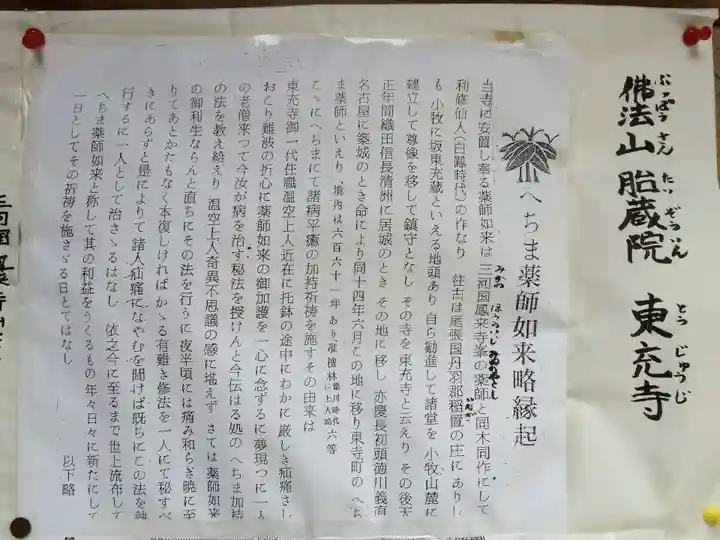 佛法山 胎蔵院 東充寺
ぶっぽうさん たいぞういん とうじゅうじ
へちま薬師如来略縁起
当寺に安置し奉る薬師如来は 三河国鳳来寺峯の薬師と同木同作にして
みかわ ほうらいじ みねのやくし
利修仙人(白鳳時代)の作なり 往古は尾張国丹羽郡稲置の庄にありし
も 小牧に坂東充蔵といえる地頭あり 自ら勧進して諸堂を 小牧山麓に
建立して尊像を移して鎮守となし その寺を東充寺と云えり その後天
正年間織田信長清洲に居城のとき その地に移し 亦慶長初頭徳川義直
名古屋に築城のとき命により同十四年六月この地に移り東寺町の へち
ま薬師といえり 境内は六百六十一坪あり
六等
こゝにへちまにて諸病平癒の加持祈祷を施すその由来は
東充寺御一代住職温空上人近在に托鉢の途中にわかに厳しき疝痛さし
おこり難渋の折心に薬師如来の御加護を 一心に念ずるに夢現つに一人
の老僧来つて今汝が病を治す秘法を授けんと今伝はる処の へちま加持
の法を教え給えり 温空上人奇異不思議の感に堪えず さては薬師如来
の御利生ならんと直ちにその法を行うに 夜半頃には痛み和らぎ暁に至
りてあとかたもなく本復しければかゝる有難き修法を一人にて秘すべ
きにあらずと是によりて 諸人疝痛になやむを聞けば既ちにこの法を執
行するに一人として治さゞるはなし 依之今に至るまで世上流布して
へちま薬師如来と称して其の利益をうくるもの年々日々に新たにして
一日としてその祈祷を施さゞる日とてはなし 以下略